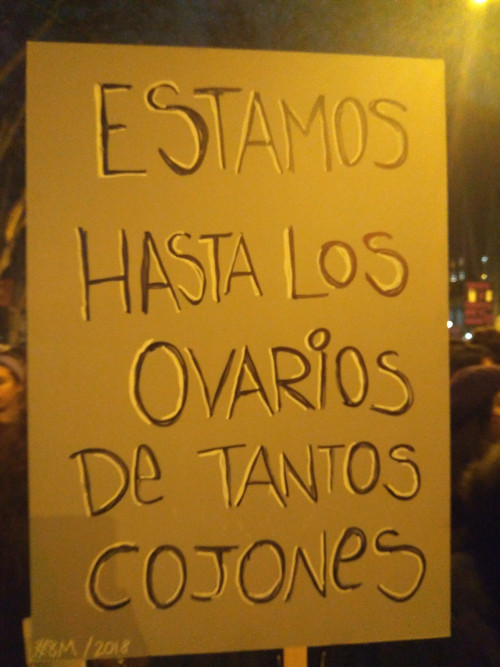 ESTAMOS
HASTA LOS
OVARIOS
De TANTOS
COJONes
#8M/2018